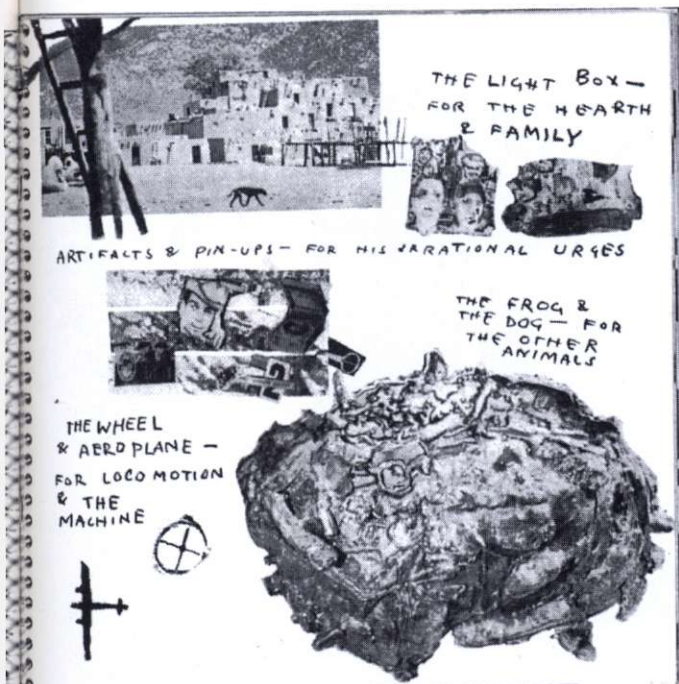 THE LIGHT BOX —
FOR THE HEARTH
& FAMILY
ARTIFACTS & PIN-UPS — FOR HIS IRRATIONAL URGES
THE FROG &
THE DOG — FOR
THE OTHER
ANIMALS
THE WHEEL
& AEROPLANE —
FOR LOCOMOTION
& THE
MACHINE